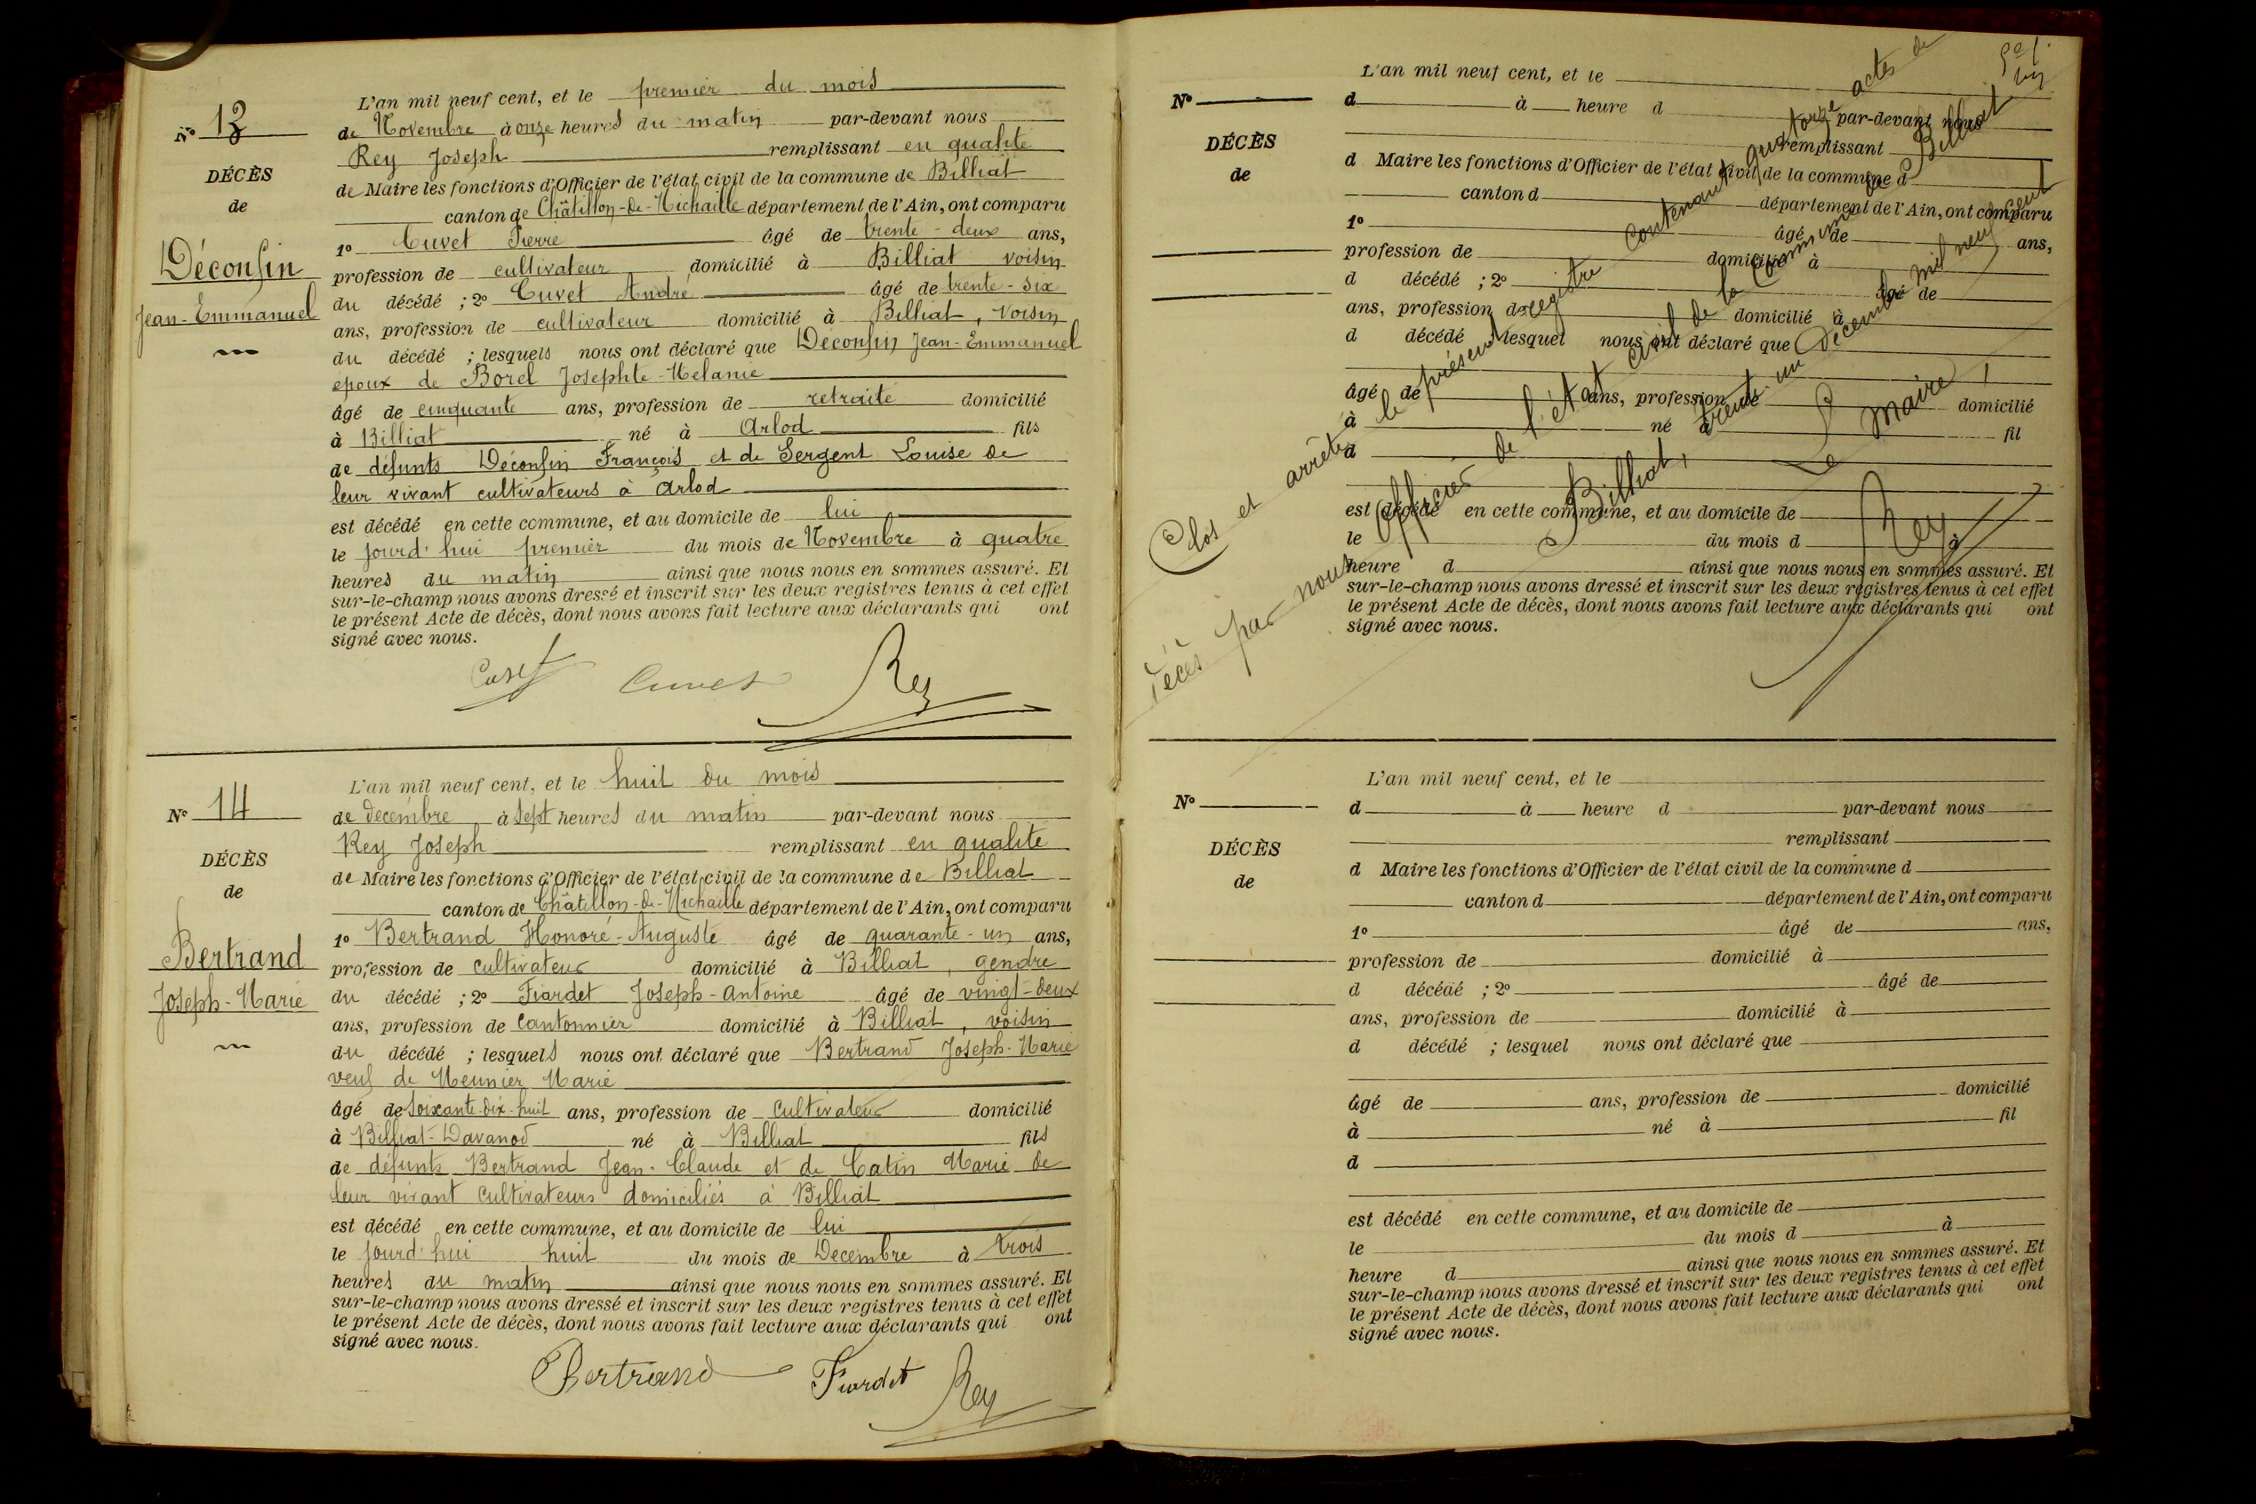 N° 13
DÉCÈS
de
Déconfin
Jean-Emmanuel
L'an mil neuf cent, et le premier du mois
de Novembre à onze heures du matin par-devant nous
Rey Joseph remplissant en qualité
de Maire les fonctions d'Officier de l'état civil de la commune de Billiat
canton de Châtillon-de-Michaille département de l'Ain, ont comparu
1° Cuvet Pierre âgé de trente-deux ans,
profession de cultivateur domicilié à Billiat voisin
du décédé ; 2° Cuvet André âgé de trente-six
ans, profession de cultivateur domicilié à Billiat, voisin
du décédé ; lesquels nous ont déclaré que Déconfin Jean-Emmanuel
époux de Borel Josephte-Mélanie
âgé de cinquante ans, profession de retraité domicilié
à Billiat né à Arlod fils
de défunts Déconfin François et de Sergent Louise de
leur vivant cultivateurs à Arlod
est décédé en cette commune, et au domicile de lui
le jourd'hui premier du mois de Novembre à quatre
heures du matin ainsi que nous nous en sommes assuré. Et
sur-le-champ nous avons dressé et inscrit sur les deux registres tenus à cet effet
le présent Acte de décès, dont nous avons fait lecture aux déclarants qui ont
signé avec nous.
Cuvet Cuvet Rey
N° 14
DÉCÈS
de
Bertrand
Joseph-Marie
L'an mil neuf cent, et le huit du mois
de décembre à sept heures du matin par-devant nous
Rey Joseph remplissant en qualité
de Maire les fonctions d'Officier de l'état civil de la commune de Billiat
canton de Châtillon-de-Michaille département de l'Ain, ont comparu
1° Bertrand Honoré-Auguste âgé de quarante-un ans,
profession de cultivateur domicilié à Billiat, gendre
du décédé ; 2° Fiardet Joseph-Antoine âgé de vingt-deux
ans, profession de cantonnier domicilié à Billiat, voisin
du décédé ; lesquels nous ont déclaré que Bertrand Joseph-Marie
veuf de Meunier Marie
âgé de soixante-dix-huit ans, profession de cultivateur domicilié
à Billiat-Davanod né à Billiat fils
de défunts Bertrand Jean-Claude et de Catin Marie de
leur vivant cultivateurs domiciliés à Billiat
est décédé en cette commune, et au domicile de lui
le jourd'hui huit du mois de Décembre à trois
heures du matin ainsi que nous nous en sommes assuré. Et
sur-le-champ nous avons dressé et inscrit sur les deux registres tenus à cet effet
le présent Acte de décès, dont nous avons fait lecture aux déclarants qui ont
signé avec nous.
Bertrand Fiardet Rey
N°
DÉCÈS
de
L'an mil neuf cent, et le
d à heure d par-devant nous
remplissant
d Maire les fonctions d'Officier de l'état civil de la commune d
canton d département de l'Ain, ont comparu
1° âgé de ans,
profession de domicilié à
d décédé ; 2° âgé de
ans, profession de domicilié à
d décédé ; lesquel nous ont déclaré que
âgé de ans, profession de domicilié
à né à fil
d
est décédé en cette commune, et au domicile de
le du mois d à
heure d ainsi que nous nous en sommes assuré. Et
sur-le-champ nous avons dressé et inscrit sur les deux registres tenus à cet effet
le présent Acte de décès, dont nous avons fait lecture aux déclarants qui ont
signé avec nous.
Clos et arrêté le présent registre contenant quatorze actes de
décès par nous Officier de l'état civil de la Commune de Billiat
Billiat, trente-un Décembre mil neuf cent
Le Maire,
Rey
N°
DÉCÈS
de
L'an mil neuf cent, et le
d à heure d par-devant nous
remplissant
d Maire les fonctions d'Officier de l'état civil de la commune d
canton d département de l'Ain, ont comparu
1° âgé de ans,
profession de domicilié à
d décédé ; 2° âgé de
ans, profession de domicilié à
d décédé ; lesquel nous ont déclaré que
âgé de ans, profession de domicilié
à né à fil
d
est décédé en cette commune, et au domicile de
le du mois d à
heure d ainsi que nous nous en sommes assuré. Et
sur-le-champ nous avons dressé et inscrit sur les deux registres tenus à cet effet
le présent Acte de décès, dont nous avons fait lecture aux déclarants qui ont
signé avec nous.